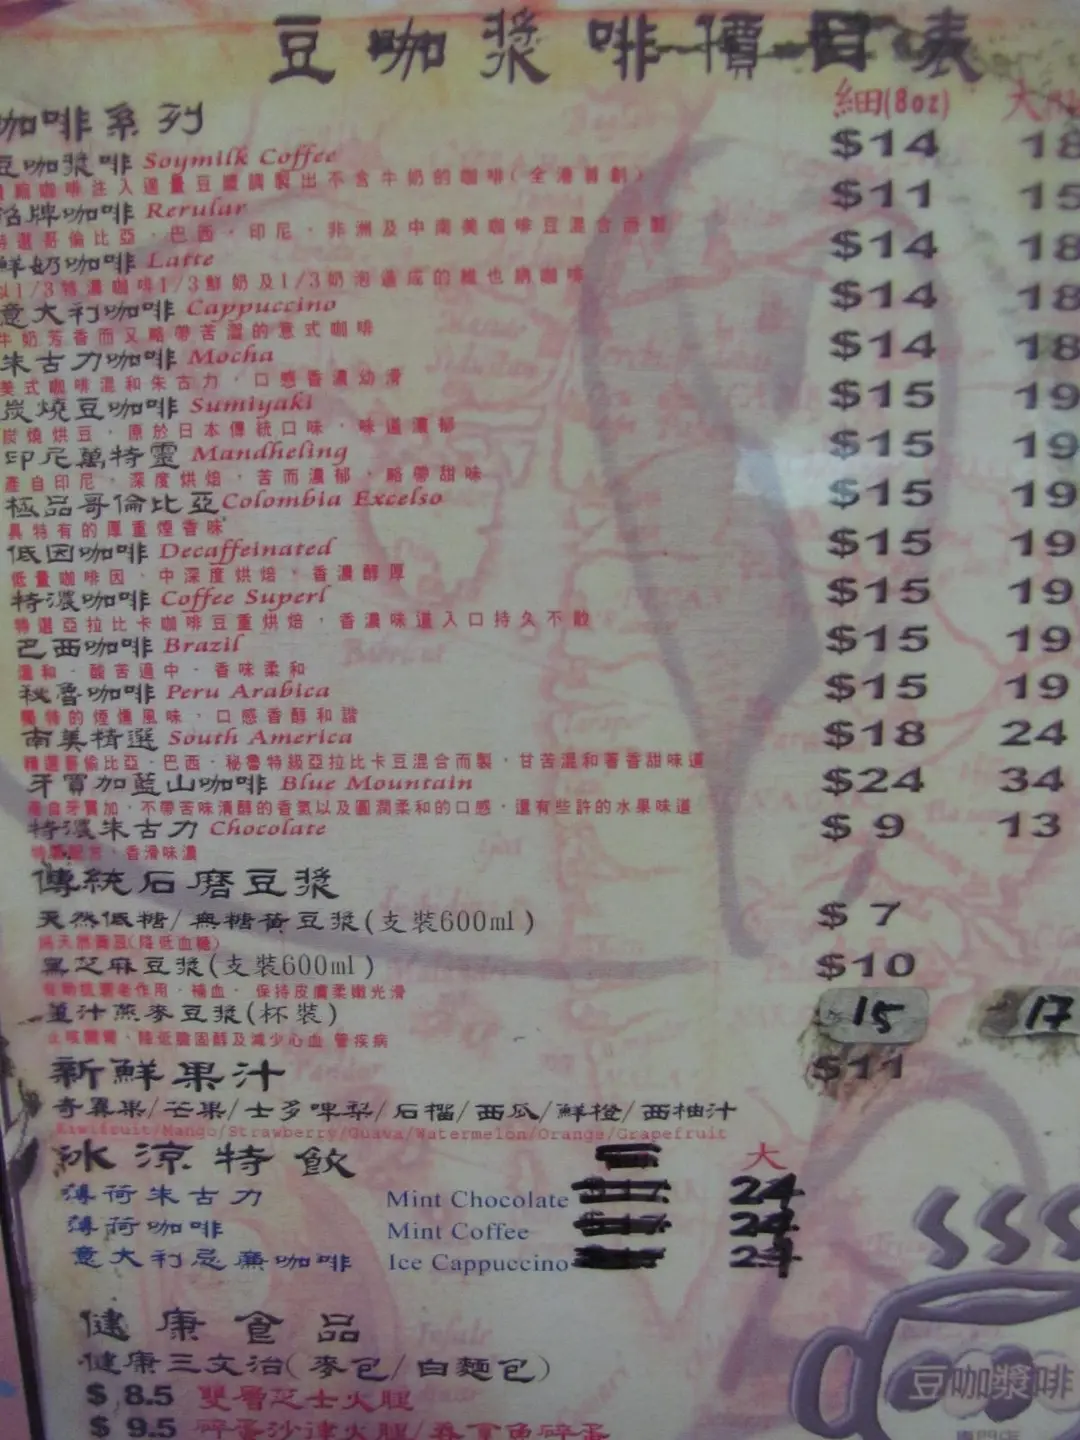 豆咖漿啡價目表
細(8oz) 大
咖啡系列
豆咖漿啡 Soymilk Coffee $14 18
咖啡注入適量豆漿調製出不含牛奶的咖啡(全港首創)
招牌咖啡 Rerular $11 15
特選哥倫比亞、巴西、印尼、非洲及中南美咖啡豆混合而製
鮮奶咖啡 Latte $14 18
以1/3特濃咖啡1/3鮮奶及1/3奶泡造成的維也納咖啡
意大利咖啡 Cappuccino $14 18
牛奶芳香而又略帶苦澀的意式咖啡
朱古力咖啡 Mocha $14 18
美式咖啡混和朱古力,口感香濃幼滑
炭燒豆咖啡 Sumiyaki $15 19
炭燒烘豆,原於日本傳統口味,味道濃郁
印尼萬特靈 Mandheling $15 19
產自印尼,深度烘焙,苦而濃郁,略帶甜味
極品哥倫比亞 Colombia Excelso $15 19
具特有的厚重煙香味
低因咖啡 Decaffeinated $15 19
低量咖啡因、中深度烘焙,香濃醇厚
特濃咖啡 Coffee Superl $15 19
特選亞拉比卡咖啡豆重烘焙,香濃味道入口持久不散
巴西咖啡 Brazil $15 19
溫和、酸苦適中、香味柔和
秘魯咖啡 Peru Arabica $15 19
獨特的煙燻風味、口感香醇和諧
南美精選 South America $18 24
精選哥倫比亞、巴西、秘魯特級亞拉比卡豆混合而製,甘苦混和著香甜味道
牙買加藍山咖啡 Blue Mountain $24 34
產自牙買加,不帶苦味清醇的香氣以及圓潤柔和的口感,還有些許的水果味道
特濃朱古力 Chocolate $ 9 13
香滑味濃
傳統石磨豆漿
天然低糖/無糖黃豆漿(支裝600ml) $ 7
(降低血糖)
黑芝麻豆漿(支裝600ml) $10
有助抗衰老作用、補血、保持皮膚柔嫩光滑
薑汁燕麥豆漿(杯裝) 15 17
止咳開胃、降低膽固醇及減少心血 管疾病
新鮮果汁 $11
奇異果/芒果/士多啤梨/石榴/西瓜/鮮橙/西柚汁
Kiwifruit/Mango/Strawberry/Guava/Watermelon/Orange/Grapefruit
冰涼特飲 大
薄荷朱古力 Mint Chocolate 24
薄荷咖啡 Mint Coffee 24
意大利忌廉咖啡 Ice Cappuccino 24
健康食品
健康三文治(麥包/白麵包)
$ 8.5 雙層芝士火腿
$ 9.5 碎蛋沙律火腿/吞拿魚碎蛋
豆咖漿啡
專門店